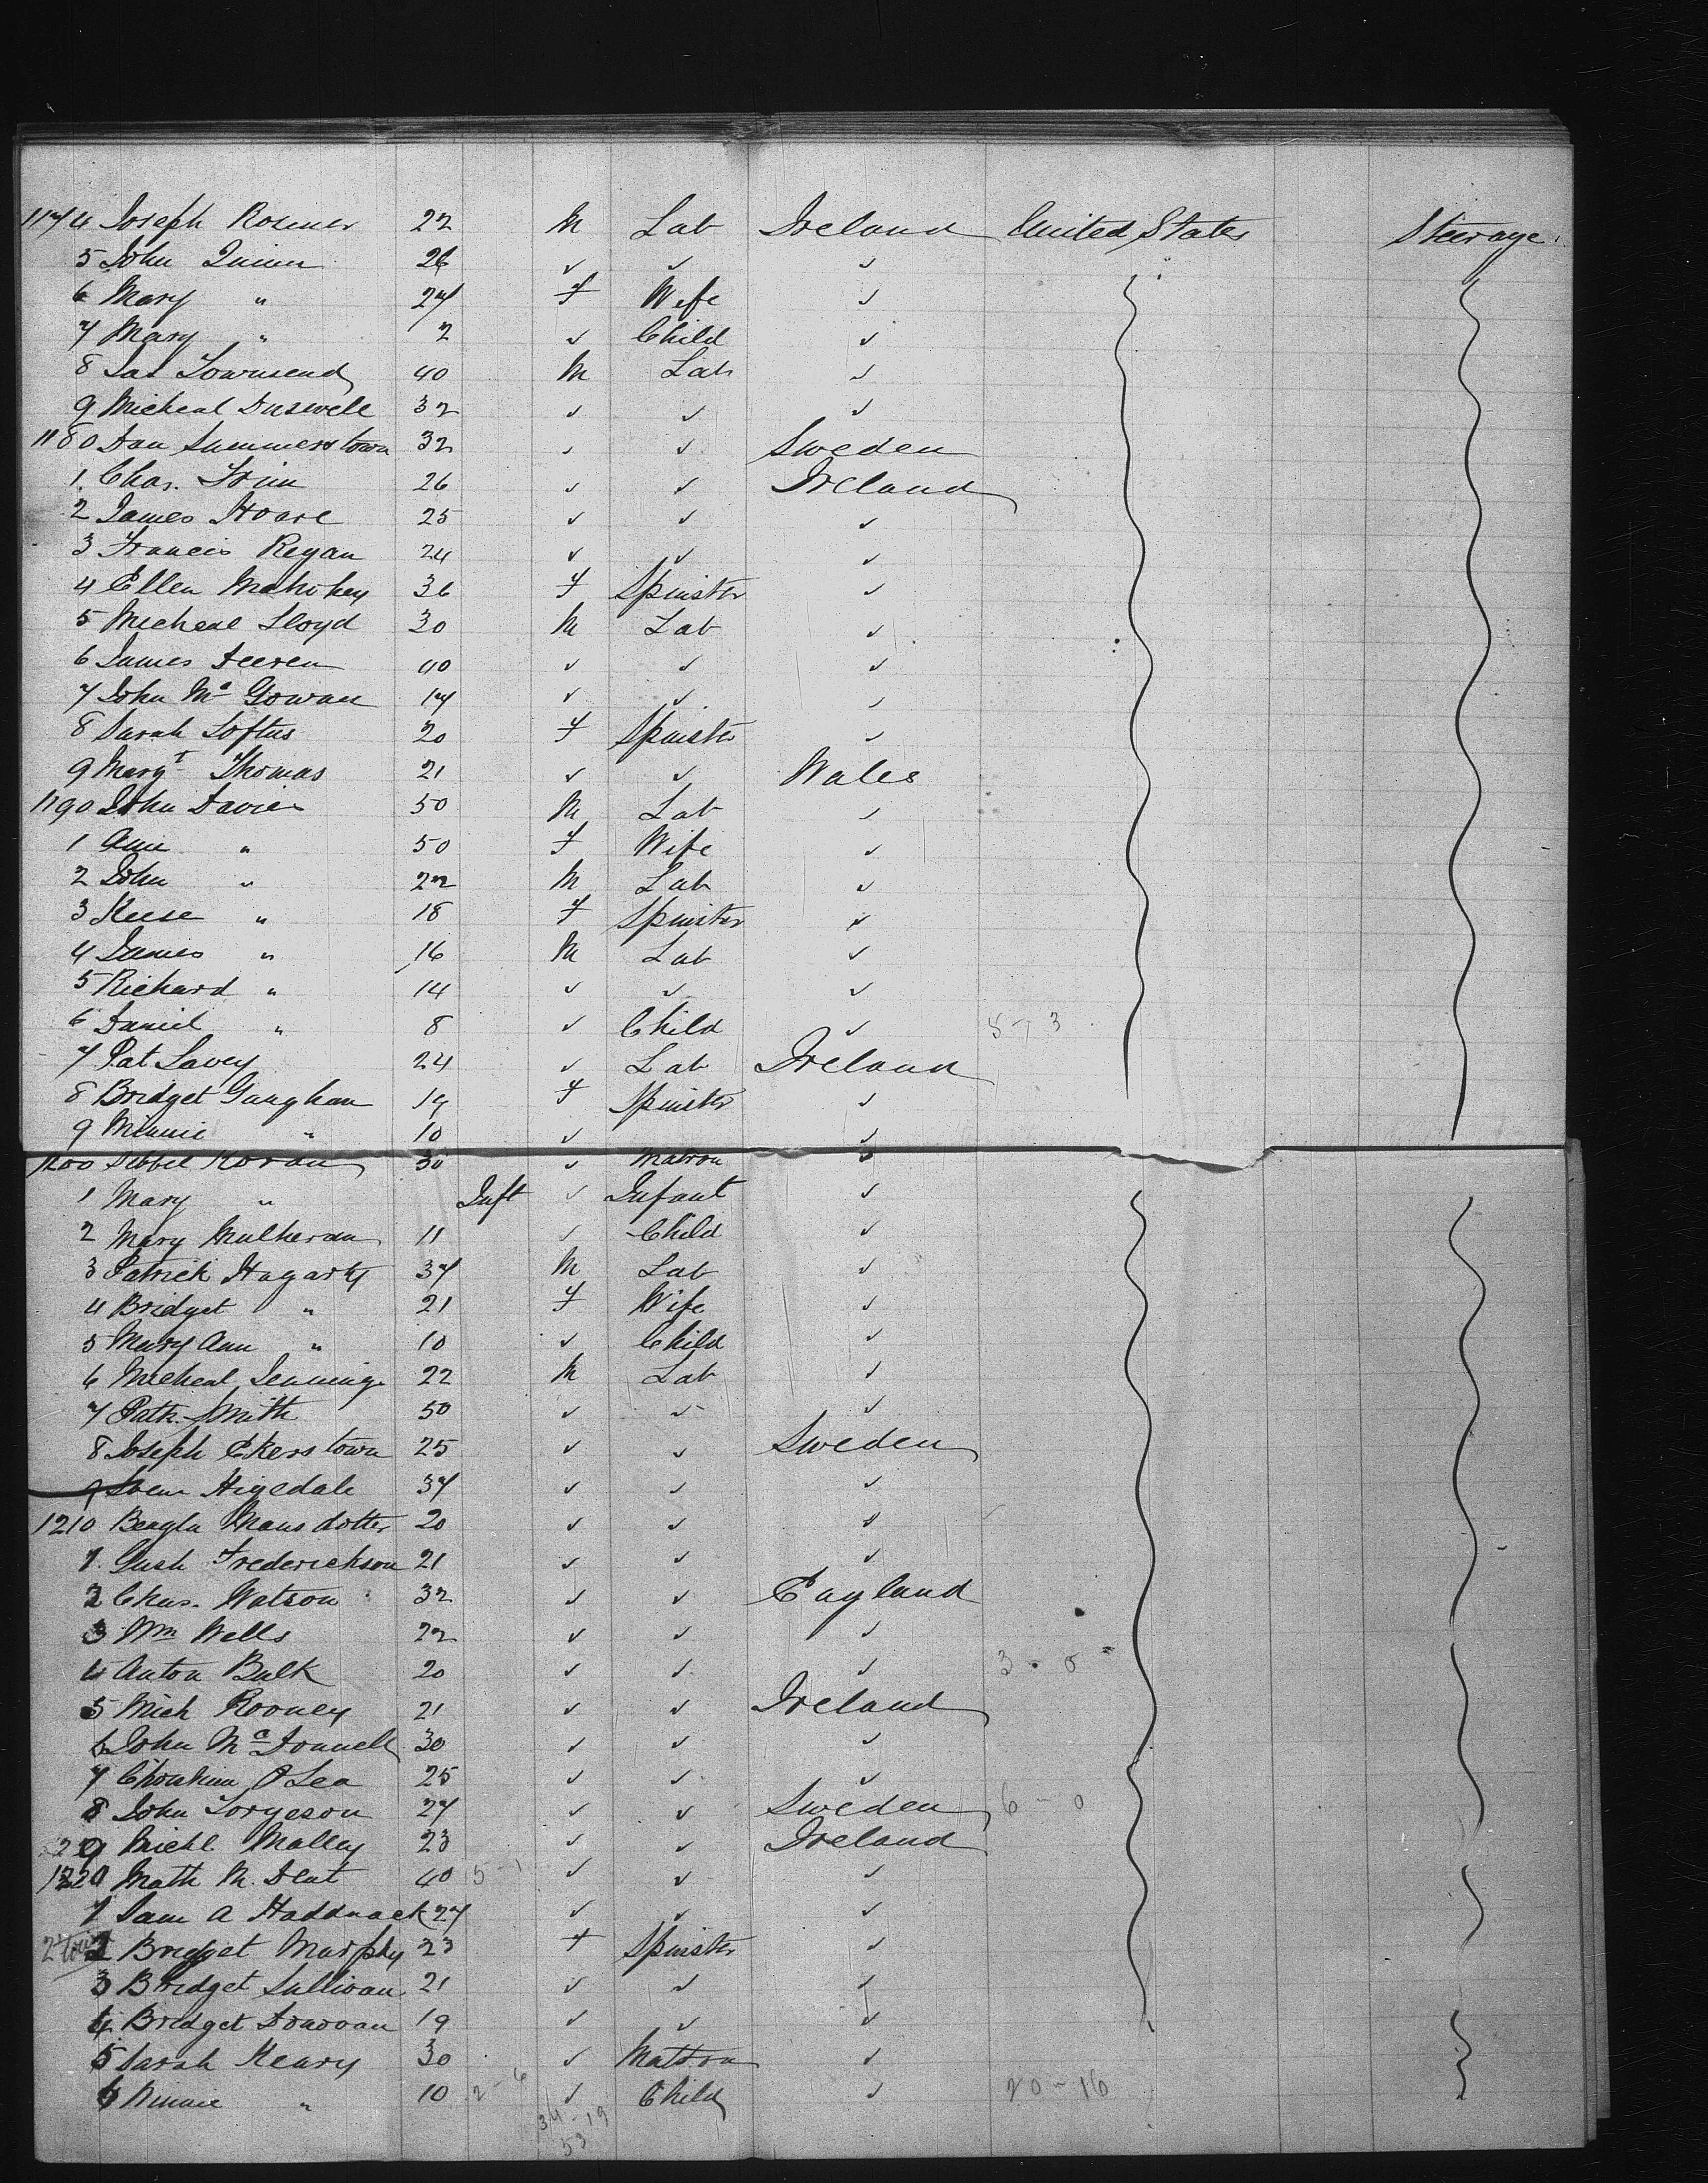 1174 Joseph Rosmer 22 M Lab Ireland United States Steerage
5 John Quinn 26 ✓ ✓ ✓
6 Mary " 27 F Wife ✓
7 Mary " 2 ✓ Child ✓
8 Jas Townsend 40 M Lab ✓
9 Micheal 32 ✓ ✓ ✓
1180 Dan Summerstown 32 ✓ ✓ Sweden
1. Chas. 26 ✓ ✓ Ireland
2 James Hoare 25 ✓ ✓ ✓
3 Francis Regan 24 ✓ ✓ ✓
4 Ellen Mahohey 36 F Spinster ✓
5 Micheal Lloyd 30 M Lab ✓
6 James 40 ✓ ✓ ✓
7 John Mc Gowan 17 ✓ ✓ ✓
8 Sarah Loftus 20 F Spinster ✓
9 Margt Thomas 21 ✓ ✓ Wales
1190 John Davies 50 M Lab ✓
1 Ann " 50 F Wife ✓
2 John " 22 M Lab ✓
3 " 18 F Spinster ✓
4 James " 16 M Lab ✓
5 Richard " 14 ✓ ✓ ✓
6 Daniel " 8 ✓ Child ✓
7 Pat Lavey 24 ✓ Lab Ireland
8 Bridget Gaughan 19 F Spinster ✓
9 Minnie " 10 ✓ ✓
1200 30 ✓ Matron ✓
1 Mary " Inft ✓ Infant ✓
2 Mary Mulheran 11 ✓ Child ✓
3 Patrick Hagarty 37 M Lab ✓
4 Bridget " 21 F Wife ✓
5 Mary Ann " 10 ✓ Child ✓
6 Micheal Jennings 22 M Lab ✓
7 Patk. Smith 50 ✓ ✓ ✓
8 Joseph Ekerstown 25 ✓ ✓ Sweden
9 Higedale 37 ✓ ✓ ✓
1210 Mansdotter 20 ✓ ✓ ✓
1. Gush Frederickson 21 ✓ ✓ ✓
2 Chas. Watson 32 ✓ ✓ England
3 Wm Wells 22 ✓ ✓ ✓
4 Anton Bulk 20 ✓ ✓ ✓ 3 - 0
5 Mich Rooney 21 ✓ ✓ Ireland
6 John Mc Donnell 30 ✓ ✓ ✓
7 O Lea 25 ✓ ✓ ✓
8 John Torgeson 27 ✓ ✓ Sweden 6 - 0
9 Michl Malley 23 ✓ ✓ Ireland
1220 Math M. Dent 40 5 - 1 ✓ ✓ ✓
1 Sam A Haddnack 27 ✓ ✓ ✓
2 Bridget Murphy 23 F Spinster ✓
3 Bridget Sullivan 21 ✓ ✓ ✓
4 Bridget Donovan 19 ✓ ✓ ✓
5 Sarah Henry 30 ✓ Matron ✓
6 Minnie " 10 2 - 6 ✓ Child ✓ 20 - 16
34 - 19
53